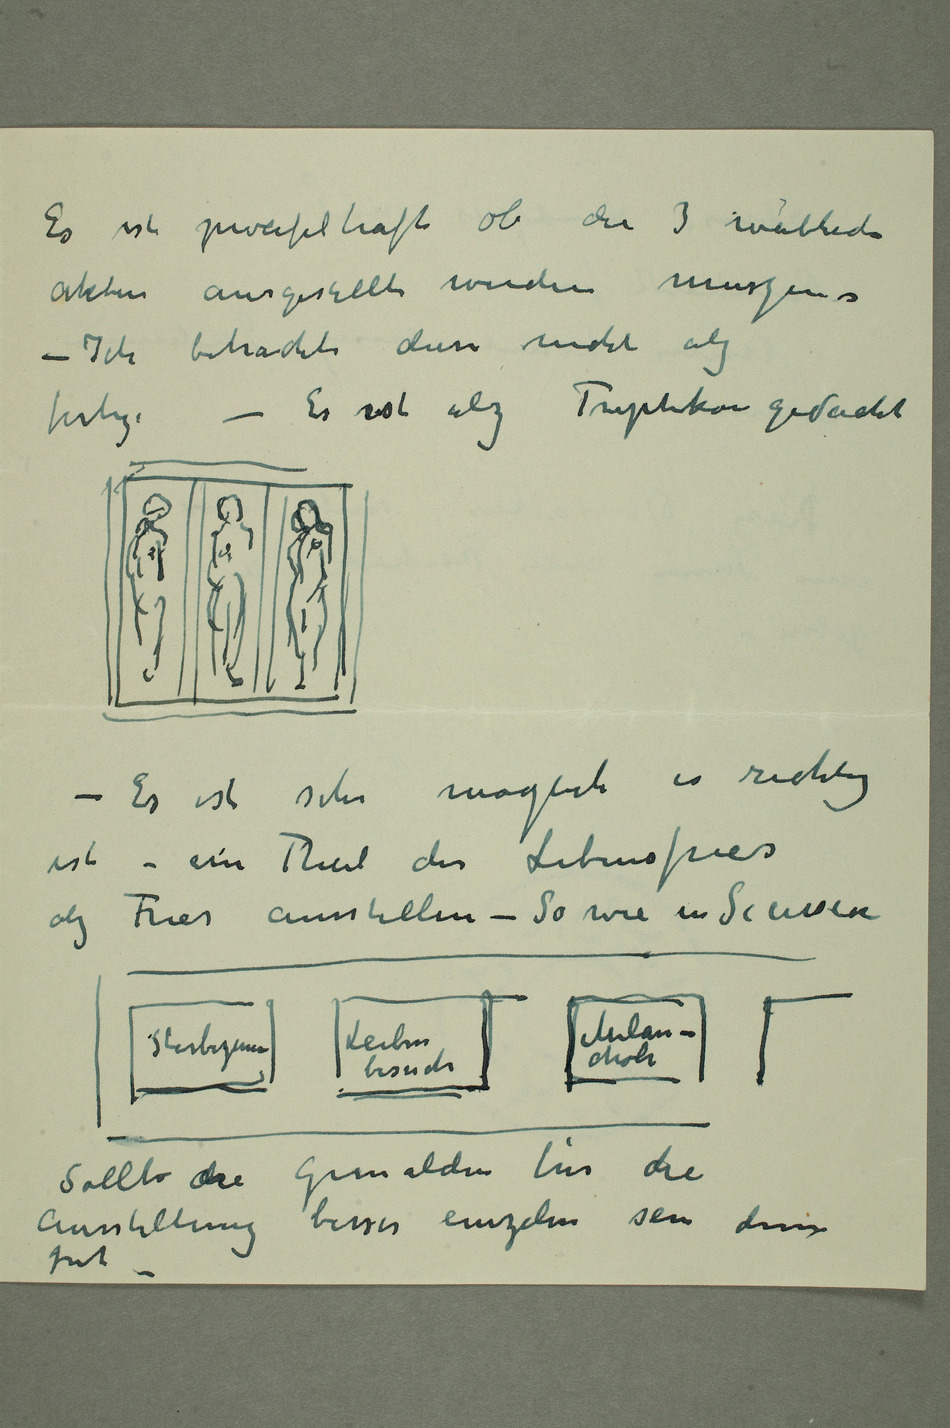 Es ist zweifelhaft ob die 3 weiblichen
akten ausgestellt werden muszen
– Ich betrachte diese nicht alz
fertig. – Es ist alz Triptikon gedacht
– Es ist sehr moglich es richtig
ist – ein Theil des Lebensfries
alz Fries ausstellen – So wie in
Sterbezimmer
Leichen
besuch
Melan–
cholie
Sollte die Gemälden für die
Ausstellung besser einzeln sein dann
gut –